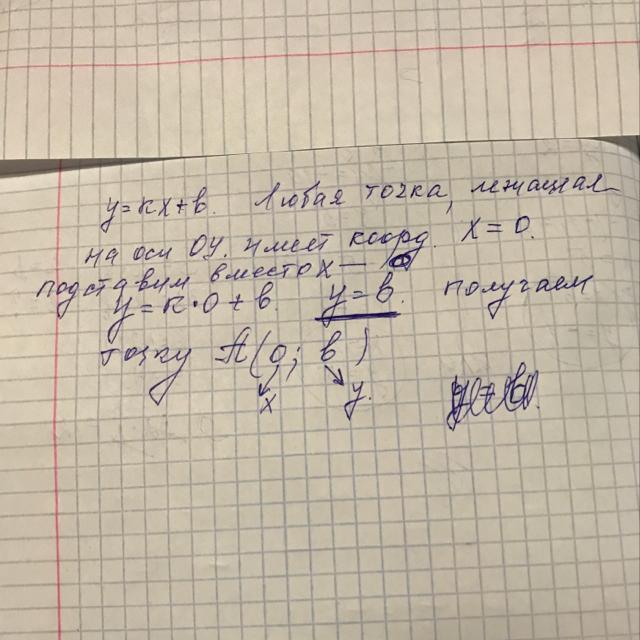 y=kx+b. Любая точка, лежащая
на оси OY. имеет коорд. x=0.
подставим вместо x — 0
y=k·0+b. y=b. получаем
точку A(0; b)
x y.